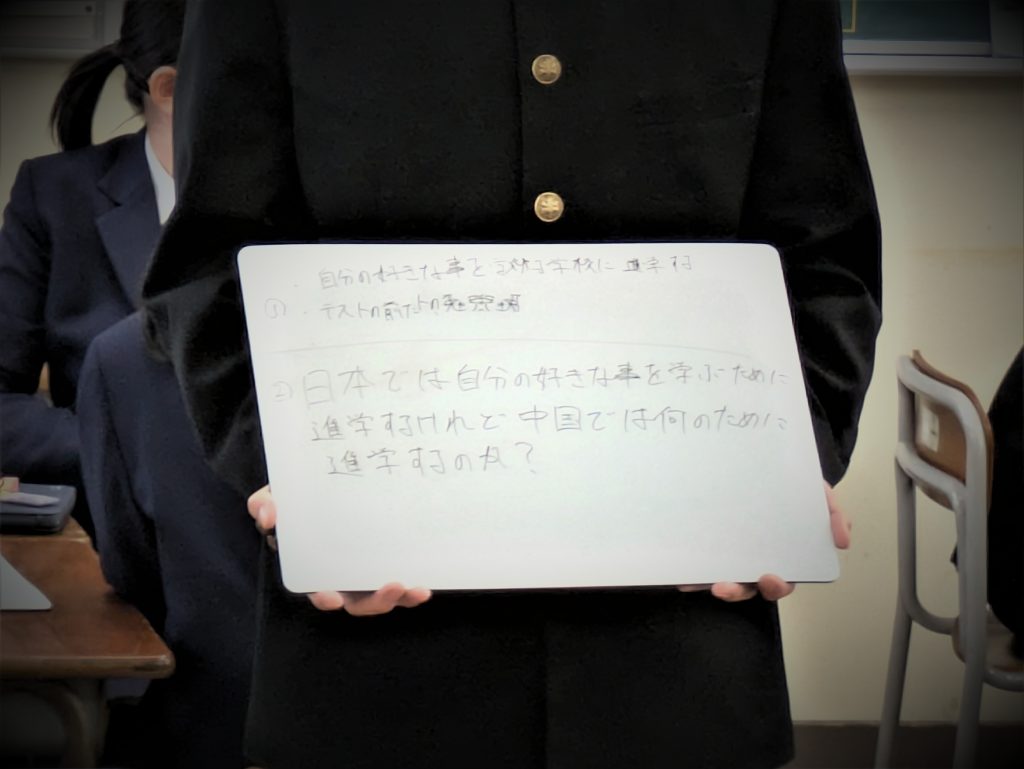 ・自分の好きな事を 学校に 進学する
① ・テストの前だけの勉強
② 日本では自分の好きな事を学ぶために
進学するけれど 中国では何のために
進学するのか?